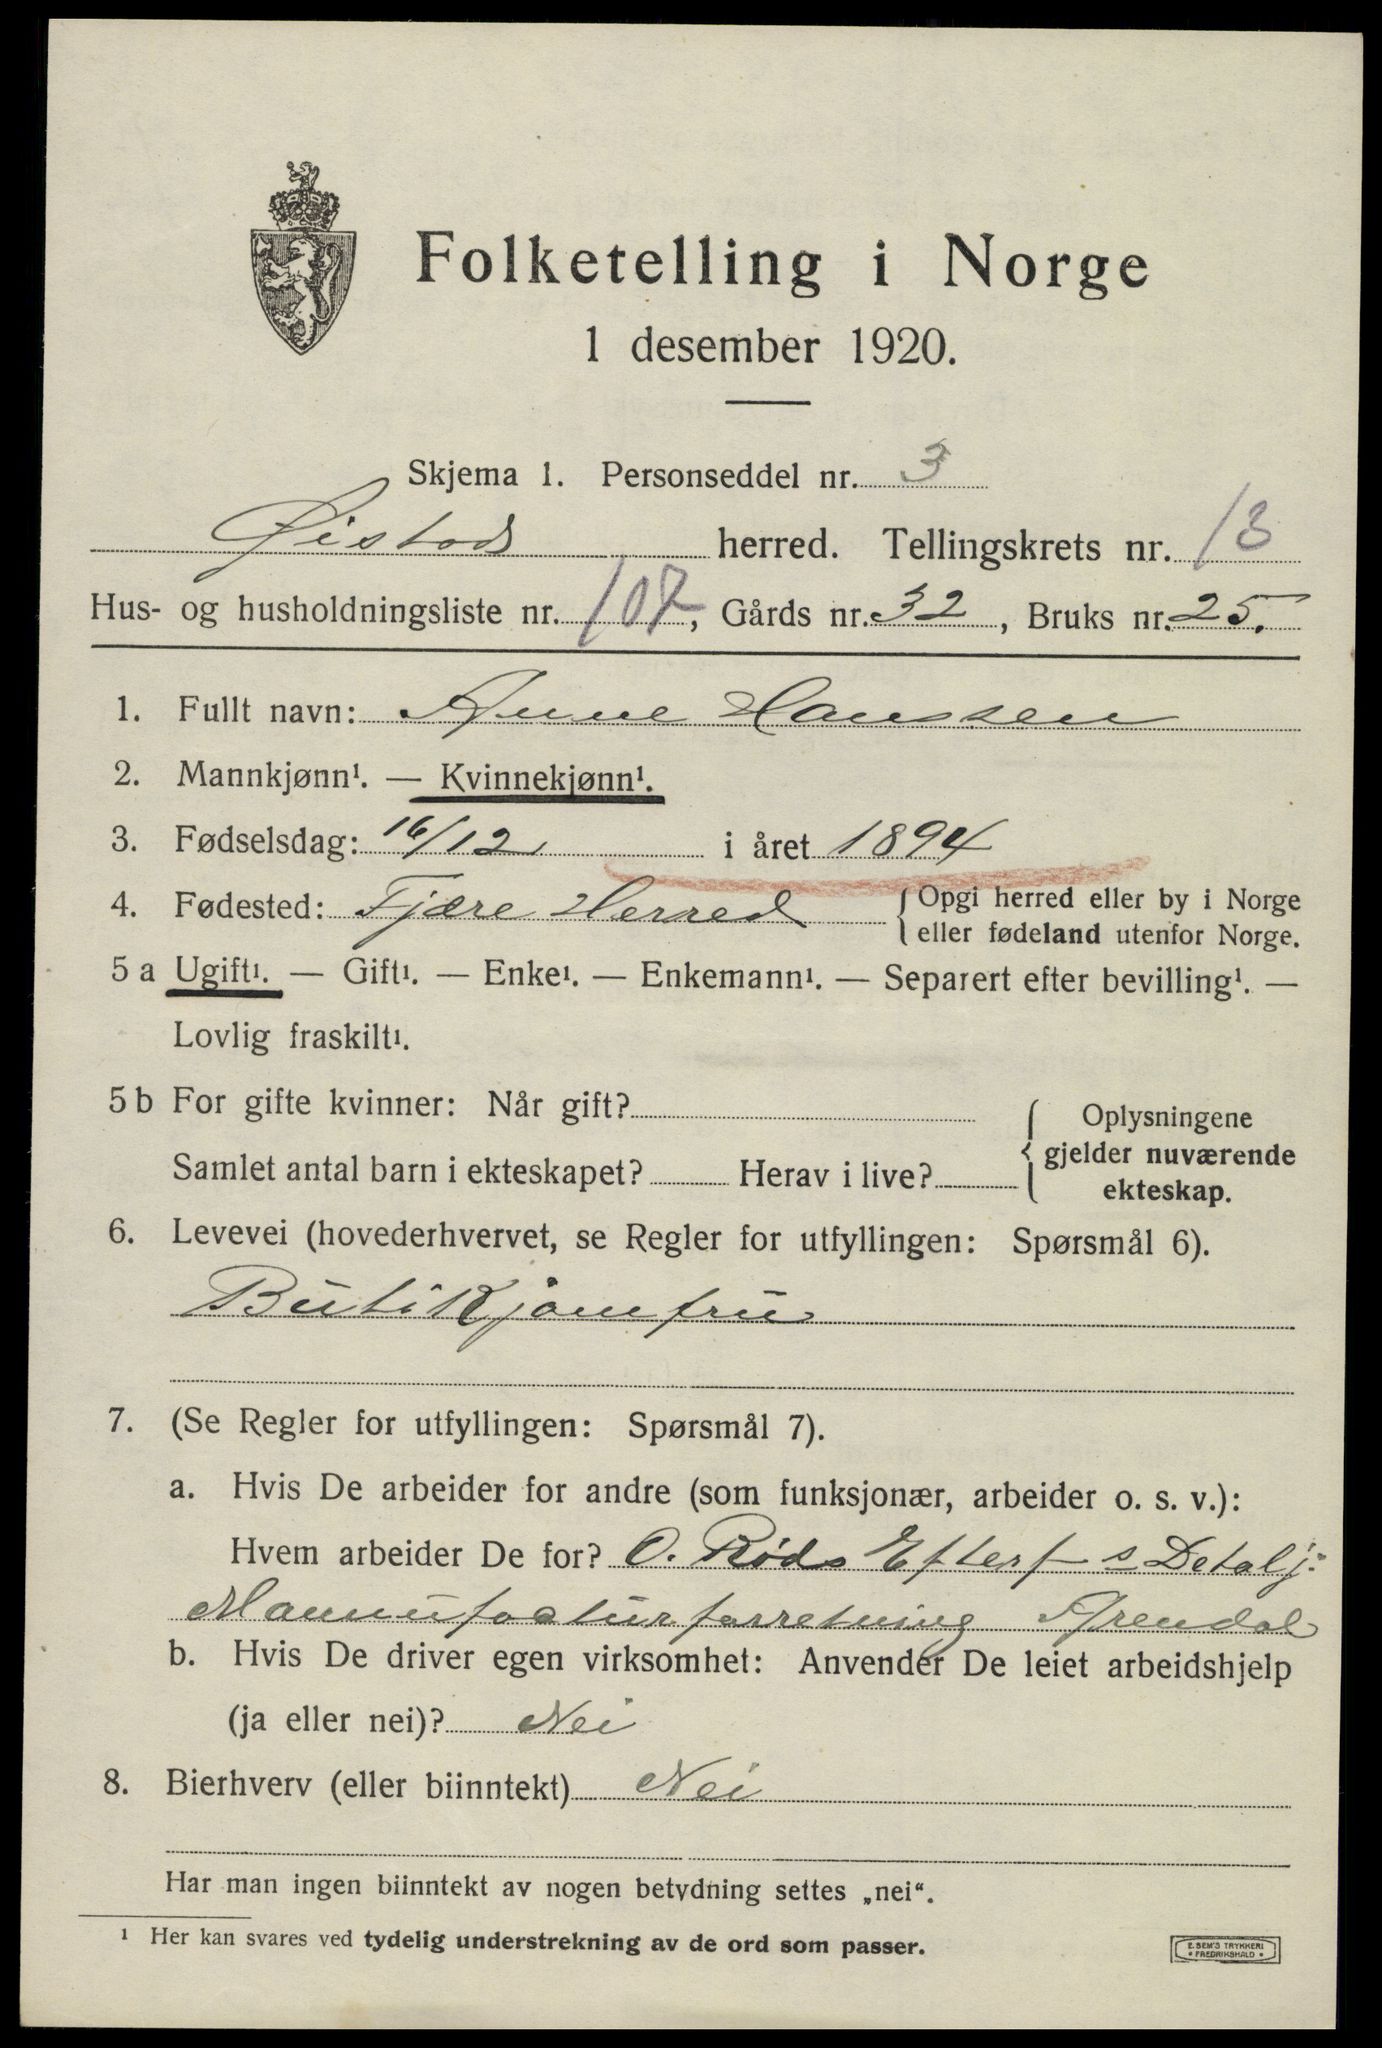 Folketelling i Norge
1 desember 1920.
Skjema 1. Personseddel nr. 3
Øistad herred. Tellingskrets nr. 13
Hus- og husholdningsliste nr. 107, Gårds nr. 32, Bruks nr. 25.
1. Fullt navn: Anne Hanssen
2. Mannkjønn¹. — Kvinnekjønn¹.
3. Fødselsdag: 16/12 i året 1894
4. Fødested: Fjære Herred { Opgi herred eller by i Norge
eller fødeland utenfor Norge.
5 a Ugift¹. — Gift¹. — Enke¹. — Enkemann¹. — Separert efter bevilling¹. —
Lovlig fraskilt¹.
5 b For gifte kvinner: Når gift?
Samlet antal barn i ekteskapet? Herav i live?
{ Oplysningene
gjelder nuværende
ekteskap.
6. Levevei (hovederhvervet, se Regler for utfyllingen: Spørsmål 6).
Butikjomfru
7. (Se Regler for utfyllingen: Spørsmål 7).
a. Hvis De arbeider for andre (som funksjonær, arbeider o. s. v.):
Hvem arbeider De for? O. Røds Efterf s Detalj:
Mannufacturforretning Arendal
b. Hvis De driver egen virksomhet: Anvender De leiet arbeidshjelp
(ja eller nei)? Nei
8. Bierhverv (eller biinntekt) Nei
Har man ingen biinntekt av nogen betydning settes „nei“.
¹ Her kan svares ved tydelig understrekning av de ord som passer.
E. SEM'S TRYKKERI
• FREDRIKSHALD •